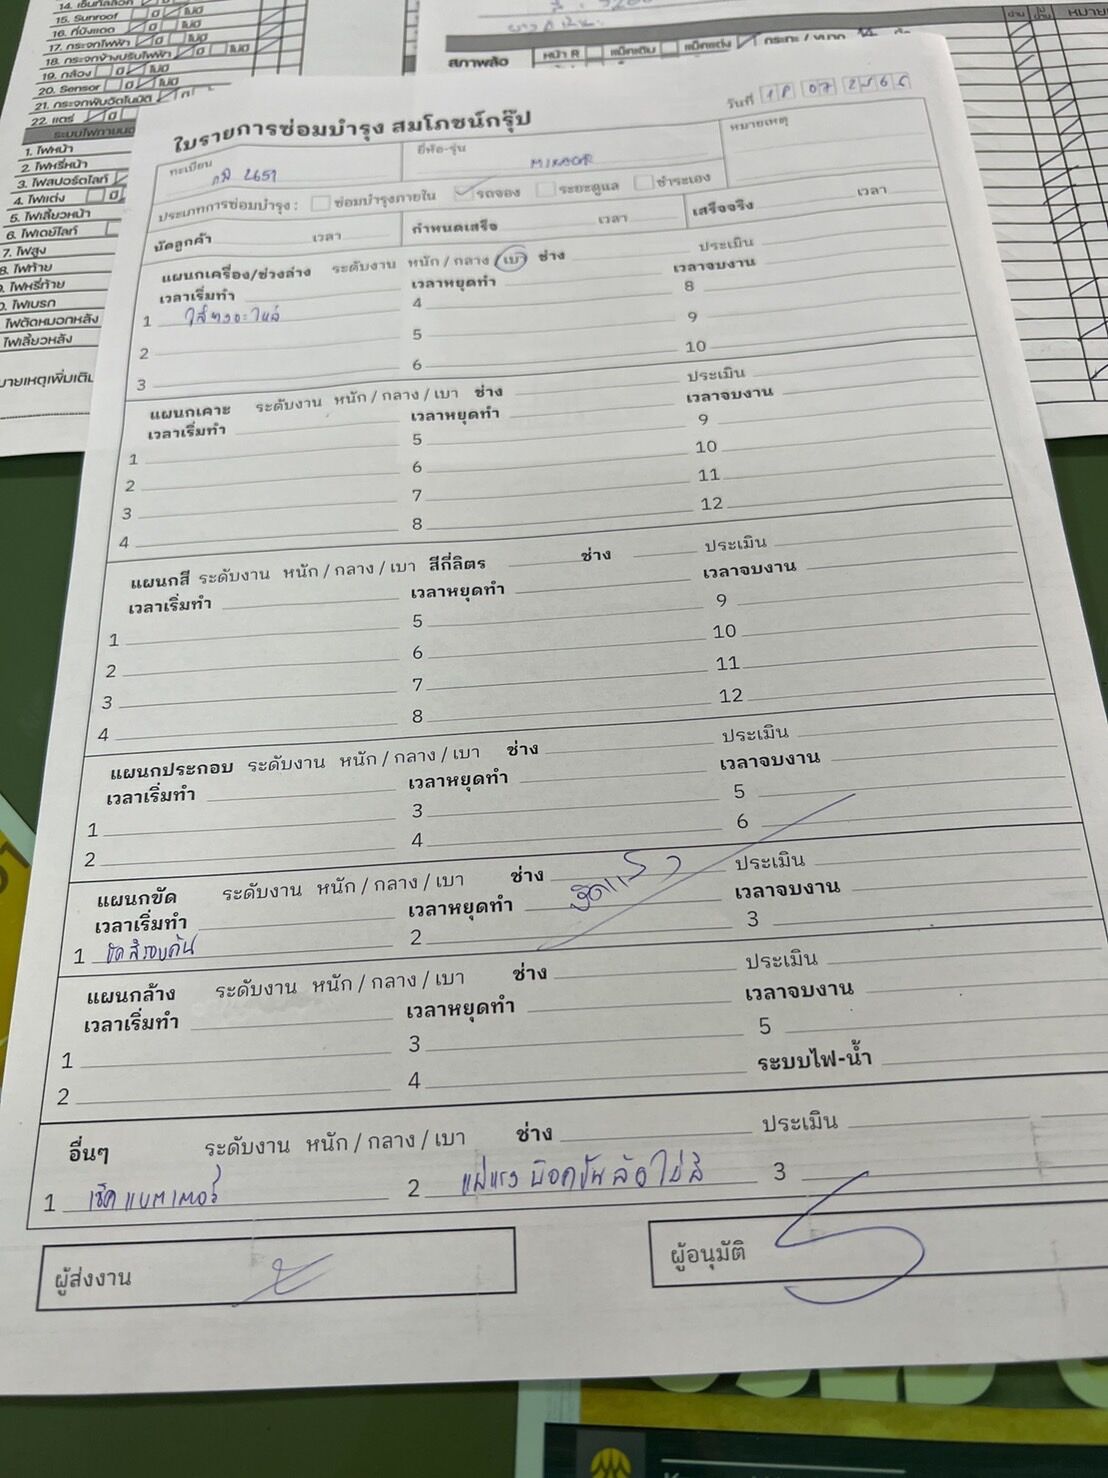 15. Sunroof มี ไม่มี
16. ที่บังแดด มี ไม่มี
17. กระจกไฟฟ้า มี ไม่มี
18. กระจกข้างปรับไฟฟ้า มี ไม่มี
19. กล้อง มี ไม่มี
20. Sensor มี ไม่มี
21. กระจกพับอัตโนมัติ
22. แตร์
1. ไฟหน้า
2. ไฟหรี่หน้า
3. ไฟสปอร์ตไลท์
4. ไฟแต่ง มี
5. ไฟเลี้ยวหน้า
6. ไฟเดย์ไลท์
7. ไฟสูง
8. ไฟท้าย
ไฟหรี่ท้าย
ไฟเบรก
ไฟตัดหมอกหลัง
ไฟเลี้ยวหลัง
สภาพล้อ หน้า R แม็กเดิม แม็กแต่ง กระทะ / ขนาด
ใบรายการซ่อมบำรุง สมโภชน์กรุ๊ป
วันที่
ทะเบียน 2651 ยี่ห้อ-รุ่น หมายเหตุ
ประเภทการซ่อมบำรุง : ซ่อมบำรุงภายใน รถจอง ระยะดูแล ชำระเอง
นัดลูกค้า เวลา กำหนดเสร็จ เวลา เสร็จจริง เวลา
แผนกเครื่อง/ช่วงล่าง ระดับงาน หนัก / กลาง / เบา ช่าง ประเมิน
เวลาเริ่มทำ เวลาหยุดทำ เวลาจบงาน
1 4 8
2 5 9
3 6 10
แผนกเคาะ ระดับงาน หนัก / กลาง / เบา ช่าง ประเมิน
เวลาเริ่มทำ เวลาหยุดทำ เวลาจบงาน
1 5 9
2 6 10
3 7 11
4 8 12
แผนกสี ระดับงาน หนัก / กลาง / เบา สีกี่ลิตร ช่าง ประเมิน
เวลาเริ่มทำ เวลาหยุดทำ เวลาจบงาน
1 5 9
2 6 10
3 7 11
4 8 12
แผนกประกอบ ระดับงาน หนัก / กลาง / เบา ช่าง ประเมิน
เวลาเริ่มทำ เวลาหยุดทำ เวลาจบงาน
1 3 5
2 4 6
แผนกขัด ระดับงาน หนัก / กลาง / เบา ช่าง ประเมิน
เวลาเริ่มทำ เวลาหยุดทำ ขัดแล้ว เวลาจบงาน
1 ขัดสีรอบคัน 2 3
แผนกล้าง ระดับงาน หนัก / กลาง / เบา ช่าง ประเมิน
เวลาเริ่มทำ เวลาหยุดทำ เวลาจบงาน
1 3 5
2 4 ระบบไฟ-น้ำ
อื่นๆ ระดับงาน หนัก / กลาง / เบา ช่าง ประเมิน
1 เช็คแบตเตอรี่ 2 แม่แรง บ๊อคขันล้อ ไม่มี 3
ผู้ส่งงาน ผู้อนุมัติ